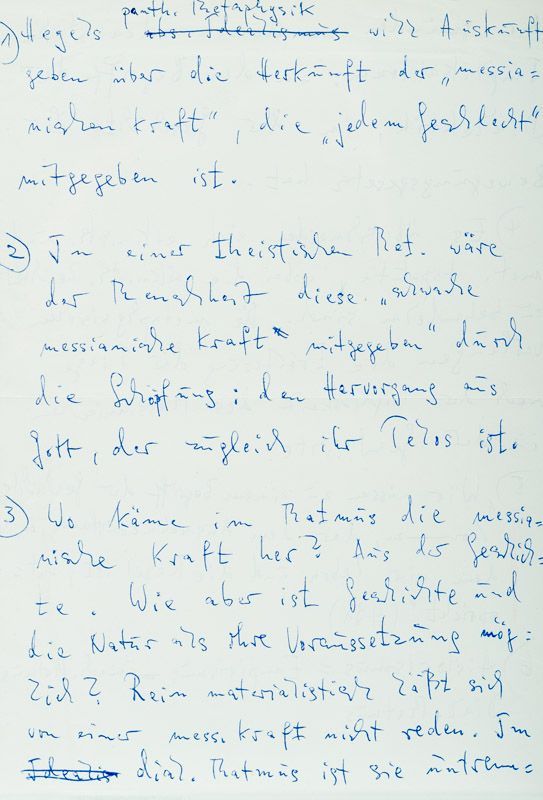 panth. Metaphysik
1) Hegels abs. Idealismus will Auskunft
geben über die Herkunft der „messia=
nischen Kraft“, die „jedem Geschlecht“
mitgegeben ist.
2) In einer theistischen Met. wäre
der Menschheit diese „schwache
messianische Kraft mitgegeben“ durch
die Schöpfung: den Hervorgang aus
Gott, der zugleich ihr Telos ist.
3) Wo käme im Matmus die messia=
nische Kraft her? Aus der Geschich=
te. Wie aber ist Geschichte und
die Natur als ihre Voraussetzung mög=
lich? Rein materialistisch läßt sich
von einer mess. Kraft nicht reden. Im
Idealis dial. Matmus ist sie untrenn=